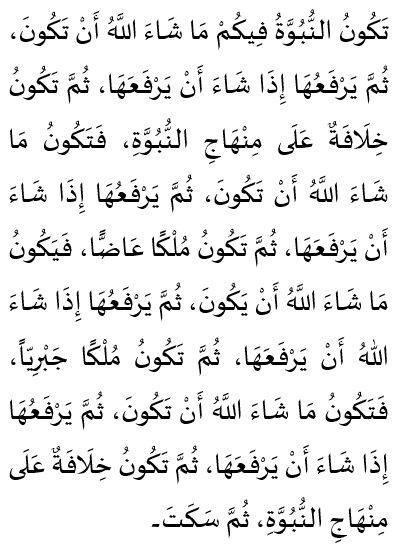 تَكُونُ النُّبُوَّةُ فِيكُمْ مَا شَاءَ اللَّهُ أَنْ تَكُونَ،
ثُمَّ يَرْفَعُهَا إِذَا شَاءَ أَنْ يَرْفَعَهَا، ثُمَّ تَكُونُ
خِلَافَةٌ عَلَى مِنْهَاجِ النُّبُوَّةِ، فَتَكُونُ مَا
شَاءَ اللَّهُ أَنْ تَكُونَ، ثُمَّ يَرْفَعُهَا إِذَا شَاءَ
أَنْ يَرْفَعَهَا، ثُمَّ تَكُونُ مُلْكًا عَاضًّا، فَيَكُونُ
مَا شَاءَ اللَّهُ أَنْ يَكُونَ، ثُمَّ يَرْفَعُهَا إِذَا شَاءَ
اللهُ أَنْ يَرْفَعَهَا، ثُمَّ تَكُونُ مُلْكًا جَبْرِيّاً،
فَتَكُونُ مَا شَاءَ اللَّهُ أَنْ تَكُونَ، ثُمَّ يَرْفَعُهَا
إِذَا شَاءَ أَنْ يَرْفَعَهَا، ثُمَّ تَكُونُ خِلَافَةٌ عَلَى
مِنْهَاجِ النُّبُوَّةِ، ثُمَّ سَكَتَ۔